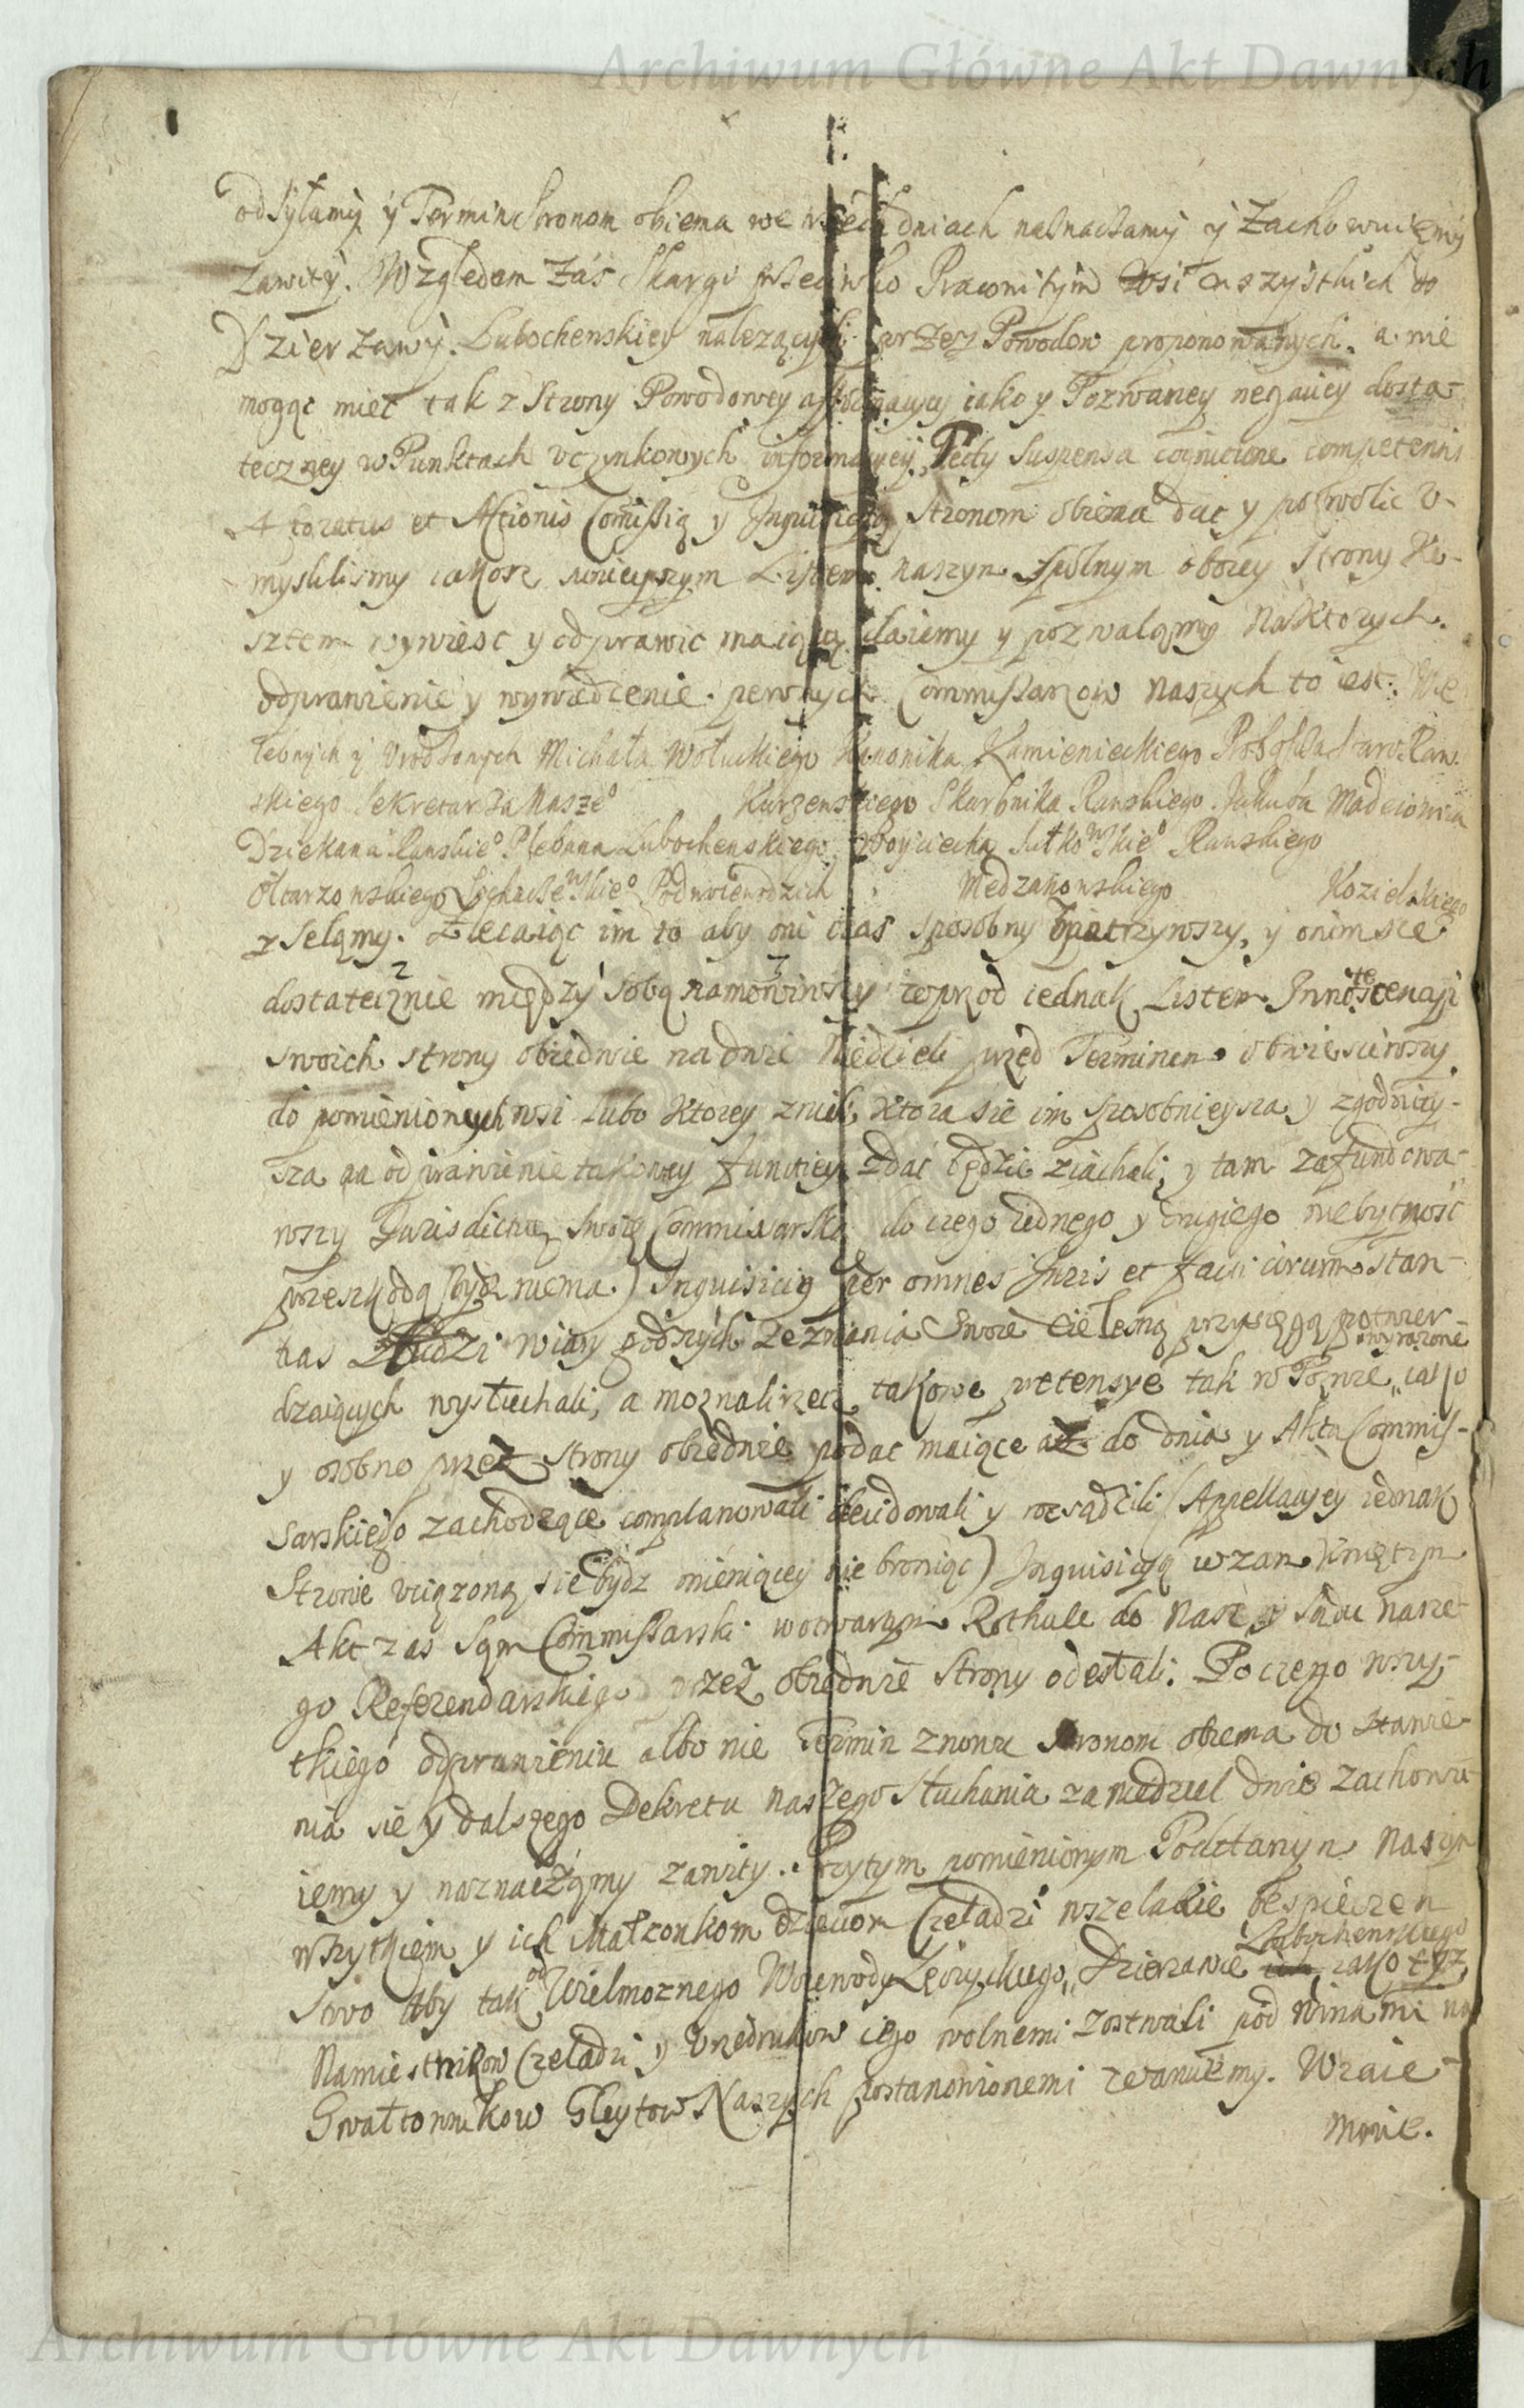 Archiwum Główne Akt Dawnych
odsyłamy y Termin stronom obiema we dniach naznaczamy y zachowuiemy
zawity. Względem zas skargi przeciwko Pracowitym wsi wszystkich do
Dzierzawy Lubochenskiey nalezących przez Powodow proponowanych, a nie
mogąc mieć tak z strony Powodowey affirmaciey iako y Pozwaney negaciey dosta-
teczney w Punktach uczynkowych informacyey, Tedy suspensa cognitione competentis
Actoratus et Actionis Comissią y Inquisicią stronom obiema dac y pozwolic u-
myslilismy iakosz ninieyszym Listem naszym spolnym oboiey strony ko-
sztem wywiesc y odprawic maiącą daiemy y pozwalamy na ktorych
odprawienie y wywiedzenie pewnych Commissarzow naszych to iest: Wie
lebnych y Urodzonych Michała Wołuckiego Kanonika Kamienieckiego
skiego Sekretarza Nasze° Kurzenskiego Skarbnika Rawskiego Jakuba
Dziekana Rawskie° Plebana Lubochenskiego, Woyciecha Rawskiego
Podwoiewodzich Kozielskiego
zsełamy. Zlecaiąc im to aby oni czas sposobny upatrzywszy, y onim sie
dostatecznie między sobą namowiwszy wprzod iednak Listem Innotescencyi
swoich strony obiedwie na dwie Niedzieli przed Terminem obwiesciwszy
do pomienionych wsi lubo ktorey znich, ktora sie im sposobnieysza y zgodniey-
sza na odprawienie takowey functiey zdać będzie ziachali, y tam zafundowa-
wszy Jurisdictią swoię Commissarską do czego iednego y drugiego niebytnosć
przeszkodą bydz niema) Inquisicią per omnes Juris et facti circumstan-
tias Ludzi wiary godnych zeznania swoie cielesną przysięgą potwier
dzaiących wysłuchali, a moznali rzecz takowe pretensye tak w Pozwie wyrazone iako
y osobno przez strony obiedwie podac maiące aż do dnia y Aktu Commis-
sarskiego zachodzące complanowali decidowali y rozsądzili (Appellacyey iednak
Stronie uciązoną sie bydz mieniącey nie broniąc) Inquisicyą w zamknętym
Akt zas sam Commissarski w otwartym Rothule do Nas y sądu nasze-
go Referendarskiego przez obiedwie Strony odesłali. Po czego wszy-
tkiego odprawieniu albo nie Termin znowu stronom obiema do stawie-
nia sie y dalszego Dekretu naszego słuchania za niedziel dwie zachowu-
iemy y naznaczamy zawity. Przytym pomienionym Poddanym naszym
wszytkiem y ich Małzonkom dzieciom Czeladzi wszelakie bespieczen
stwo Aby tak od Wielmoznego Woiewody Łęczyckiego, Dzierzawce Lubochenskiego iako tez
Namiestnikow Czeladzi y Urzednikow iego wolnemi zostwali pod winami na
Gwałtownikow Gleytow Naszych postanowionemi waruiemy. Wzaie-
mnie.
Archiwum Główne Akt Dawnych